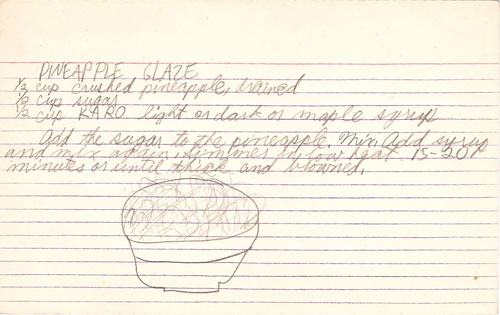 PINEAPPLE GLAZE
1/2 cup crushed pineapple, drained
1/2 cup sugar
1/2 cup KARO light or dark or maple syrup
Add the sugar to the pineapple. Mix. Add syrup
and mix again. Simmer on low heat 15-20
minutes or until thick and browned.